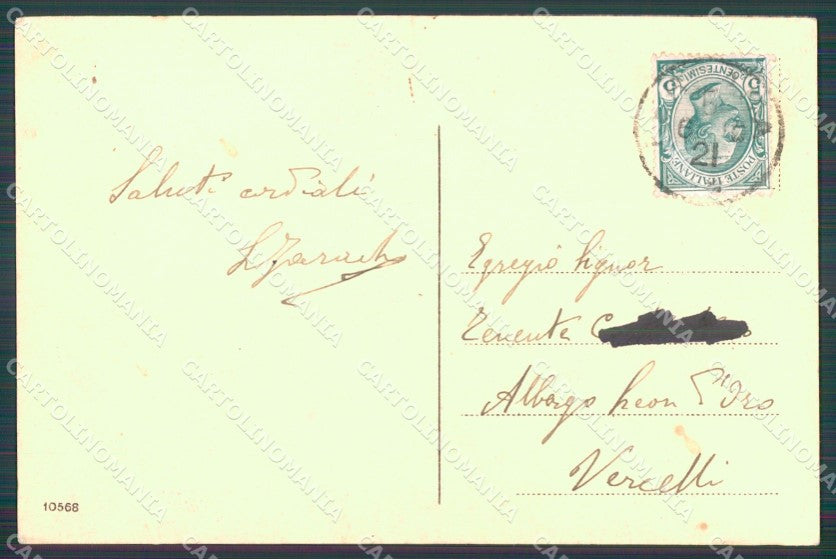 Saluti cordiali
Egregio Signor
Tenente C
Albergo Leon d'Oro
Vercelli
10568
POSTE ITALIANE
CENTESIMI
5 5
21
CARTOLINOMANIA